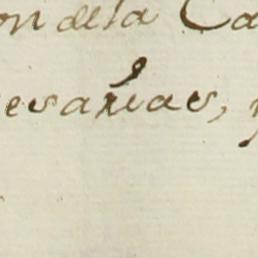 on de la Ca
esarias,